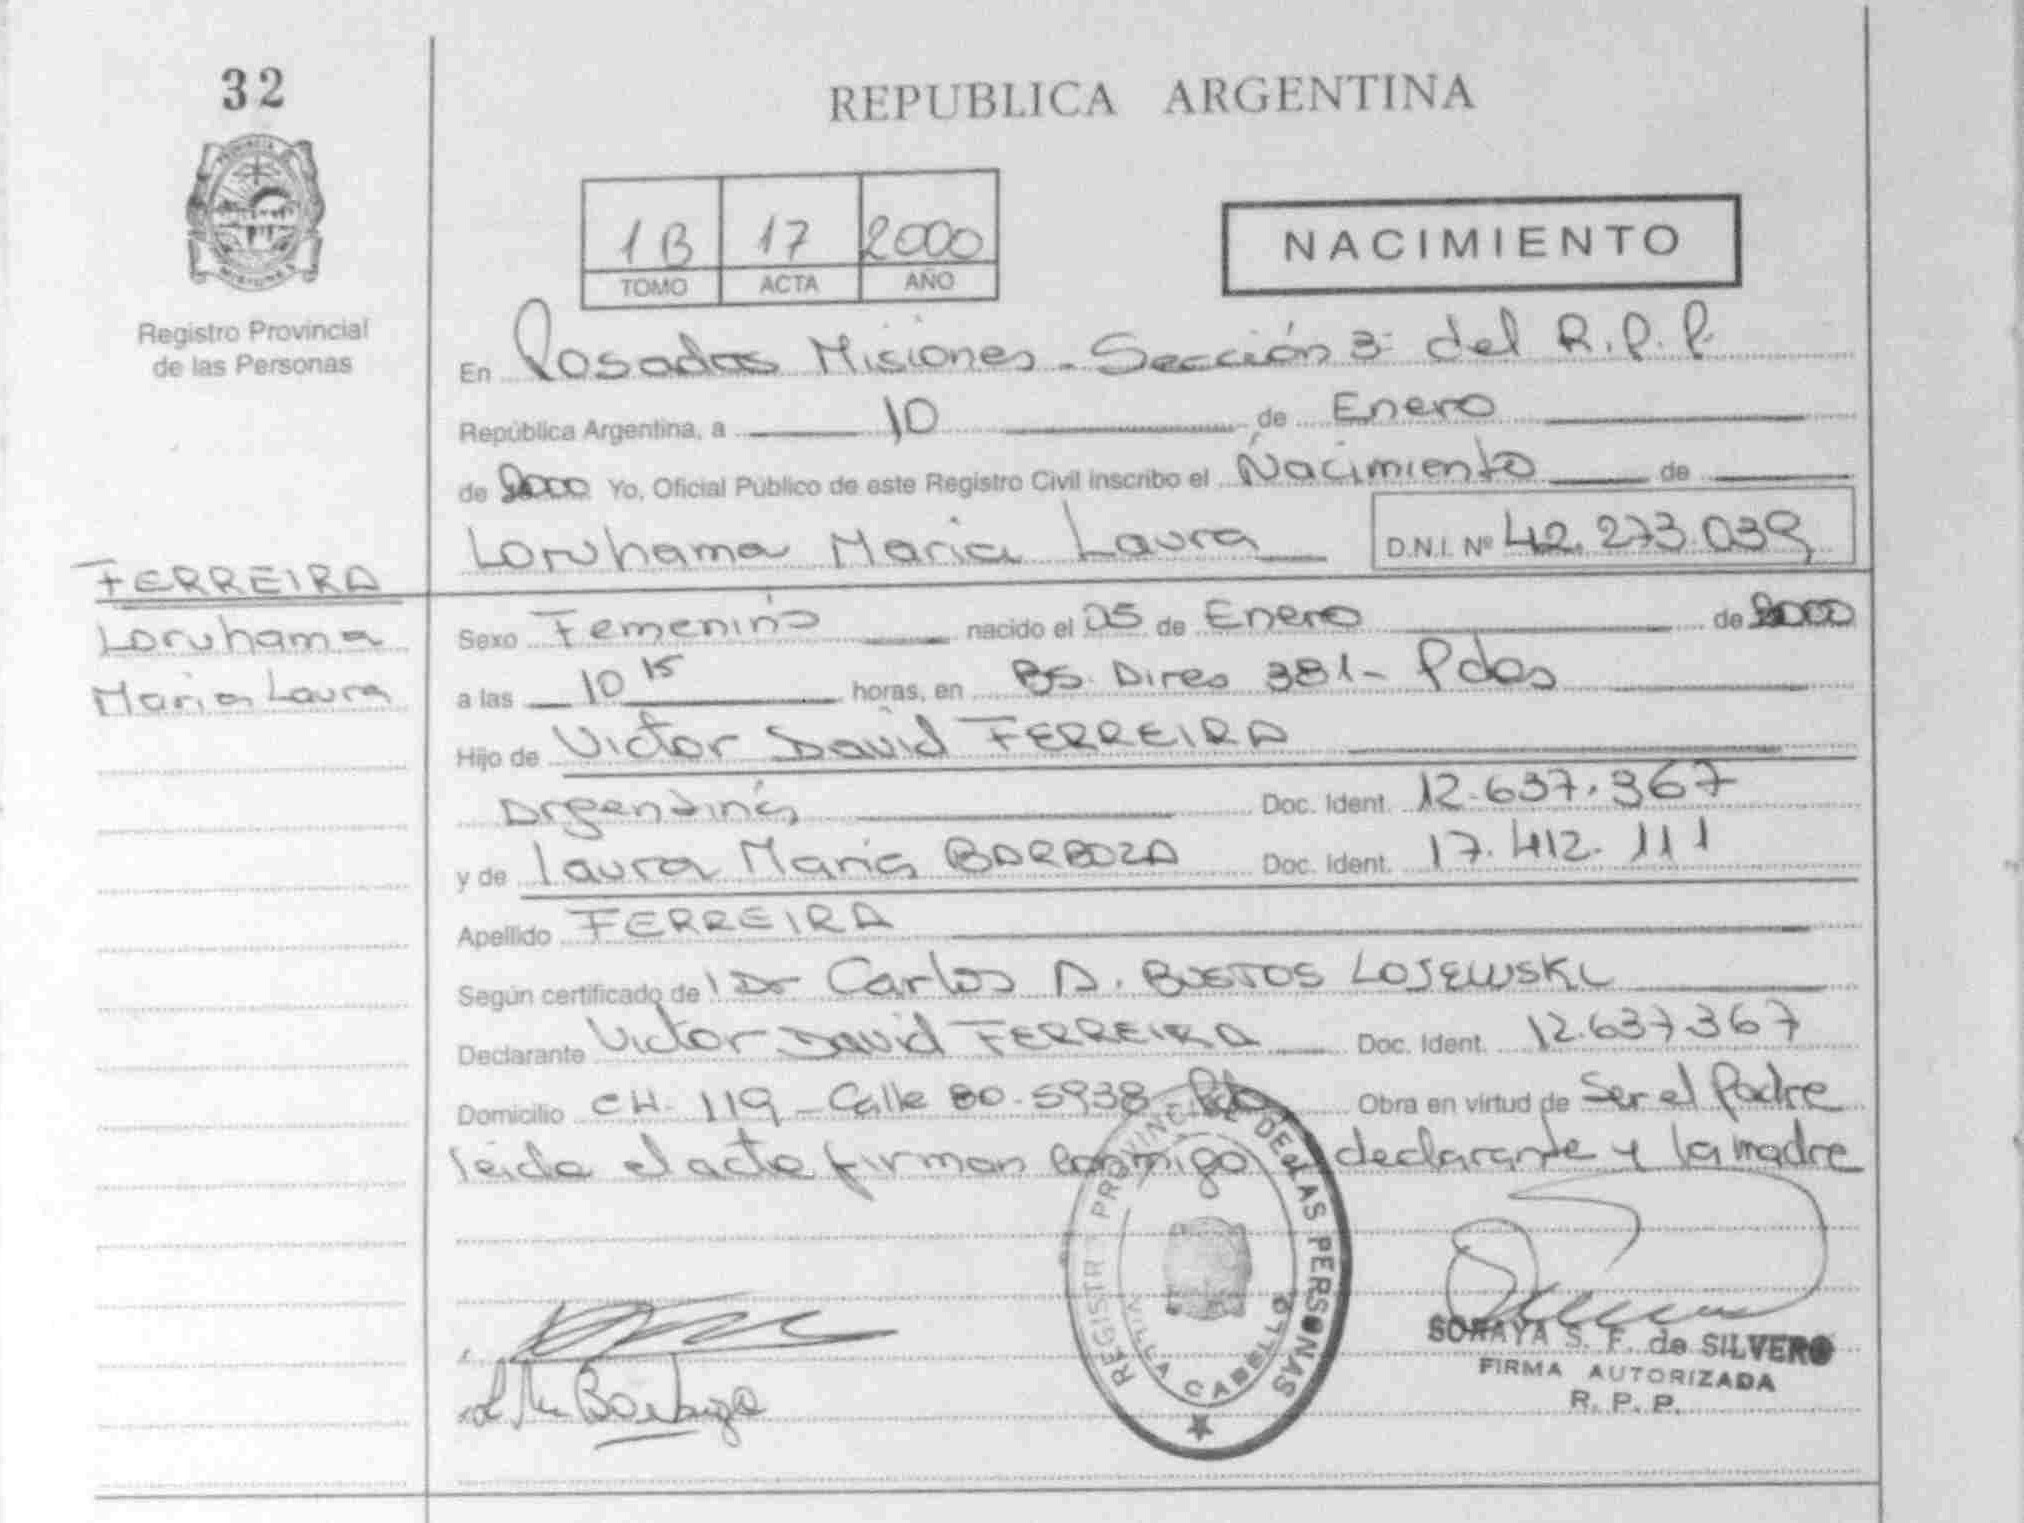 32
REPUBLICA ARGENTINA
1B 17 2000
TOMO ACTA AÑO
NACIMIENTO
Registro Provincial
de las Personas
En Posadas Misiones - Sección 3ª del R.P.P.
República Argentina, a 10 de Enero
de 2000 Yo, Oficial Público de este Registro Civil inscribo el Nacimiento de
Loruhama Maria Laura D.N.I. Nº 42.273.039
FERREIRA
Loruhama
Maria Laura
Sexo Femenino nacido el 05 de Enero de 2000
a las 10 15 horas, en Bs. Aires 381 - Pdas
Hijo de Victor David FERREIRA
Argentino Doc. Ident. 12.637.367
y de Laura Maria BARBOZA Doc. Ident. 17.412.111
Apellido FERREIRA
Según certificado de Dr Carlos A. BUSTOS LOSEWSKI
Declarante Victor David FERREIRA Doc. Ident. 12.637.367
Domicilio CH. 119 - Calle 80 - 5938 Pdas Obra en virtud de Ser el Padre
leida el acta firman conmigo el declarante y la madre
REGISTRO PROVINCIAL DE LAS PERSONAS
VILLA CABELLO
SORAYA S. F. de SILVERO
FIRMA AUTORIZADA
R. P. P.